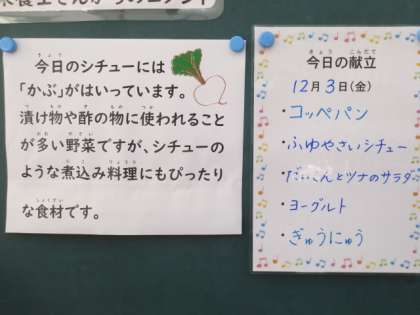 今日のシチューには
「かぶ」がはいっています。
漬け物や酢の物に使われること
が多い野菜ですが、シチューの
ような煮込み料理にもぴったり
な食材です。
今日の献立
12月3日(金)
・コッペパン
・ふゆやさいシチュー
・だいこんとツナのサラダ
・ヨーグルト
・ぎゅうにゅう